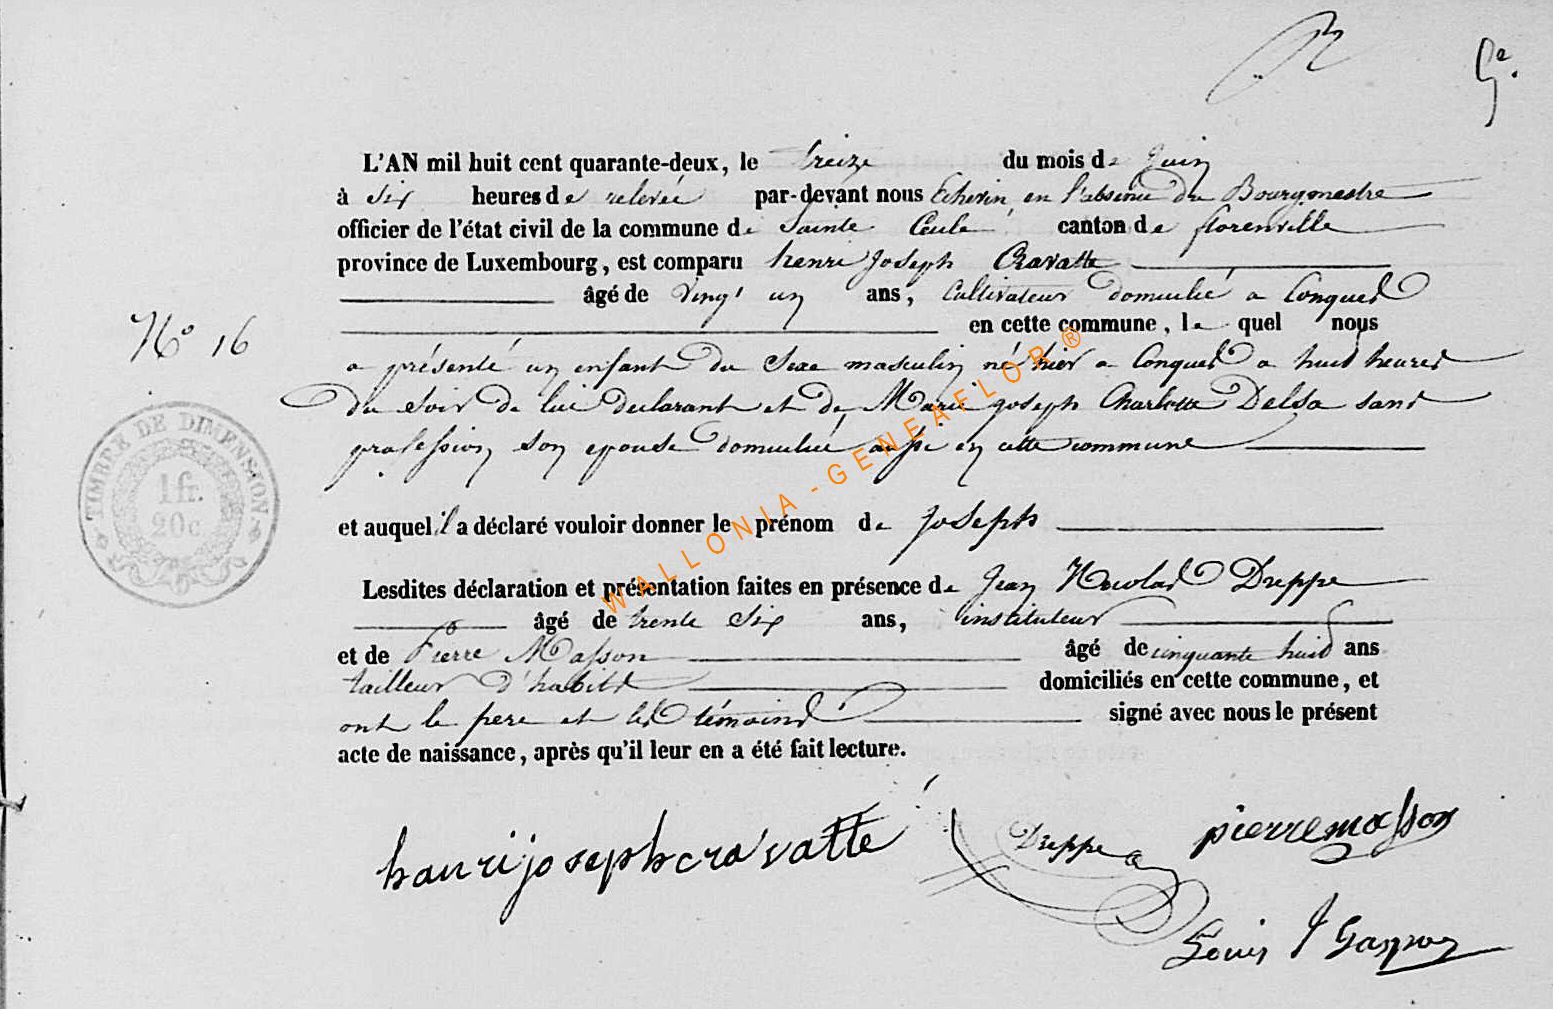 5e.
L'AN mil huit cent quarante-deux, le treize du mois de juin
à six heures de relevée par-devant nous Echevin en l'absence du Bourgmestre
officier de l'état civil de la commune de Sainte Cecile canton de florenville
province de Luxembourg, est comparu henri Joseph Cravatte
âgé de vingt un ans, cultivateur domicilié a Conques
en cette commune, le quel nous
N° 16
a présenté un enfant du sexe masculin né hier a Conques a huit heures
du soir de lui declarant et de Marie joseph Charlotte Delsa sans
profession son epouse domicilié aussi en cette commune
TIMBRE DE DIMENSION
1 fr.
20 c
et auquel il a déclaré vouloir donner le prénom de Joseph
Lesdites déclaration et présentation faites en présence de Jean Nicolas Dreppe
âgé de trente six ans, instituteur
et de Pierre Masson âgé de cinquante huit ans
tailleur d'habits domiciliés en cette commune, et
ont le pere et les témoins signé avec nous le présent
acte de naissance, après qu'il leur en a été fait lecture.
hanrijosephcravatte
Dreppe
pierremasson
Louis J Gaspar
WALLONIA - GENEAFLOR ®